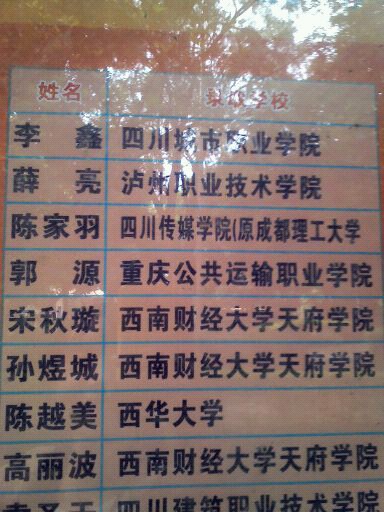 姓名 录取学校
李鑫 四川城市职业学院
薛亮 泸州职业技术学院
陈家羽 四川传媒学院(原成都理工大学
郭源 重庆公共运输职业学院
宋秋璇 西南财经大学天府学院
孙煜城 西南财经大学天府学院
陈越美 西华大学
高丽波 西南财经大学天府学院
四川建筑职业技术学院